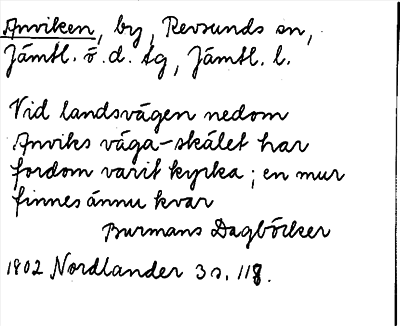 Anviken, by, Revsunds sn,
Jämtl. ö. d. tg, Jämtl. l.
Vid landsvägen nedom
Anviks väga-skälet har
fordom varit kyrka; en mur
finnes ännu kvar
Burmans Dagböcker
1802 Nordlander 3 s. 118.